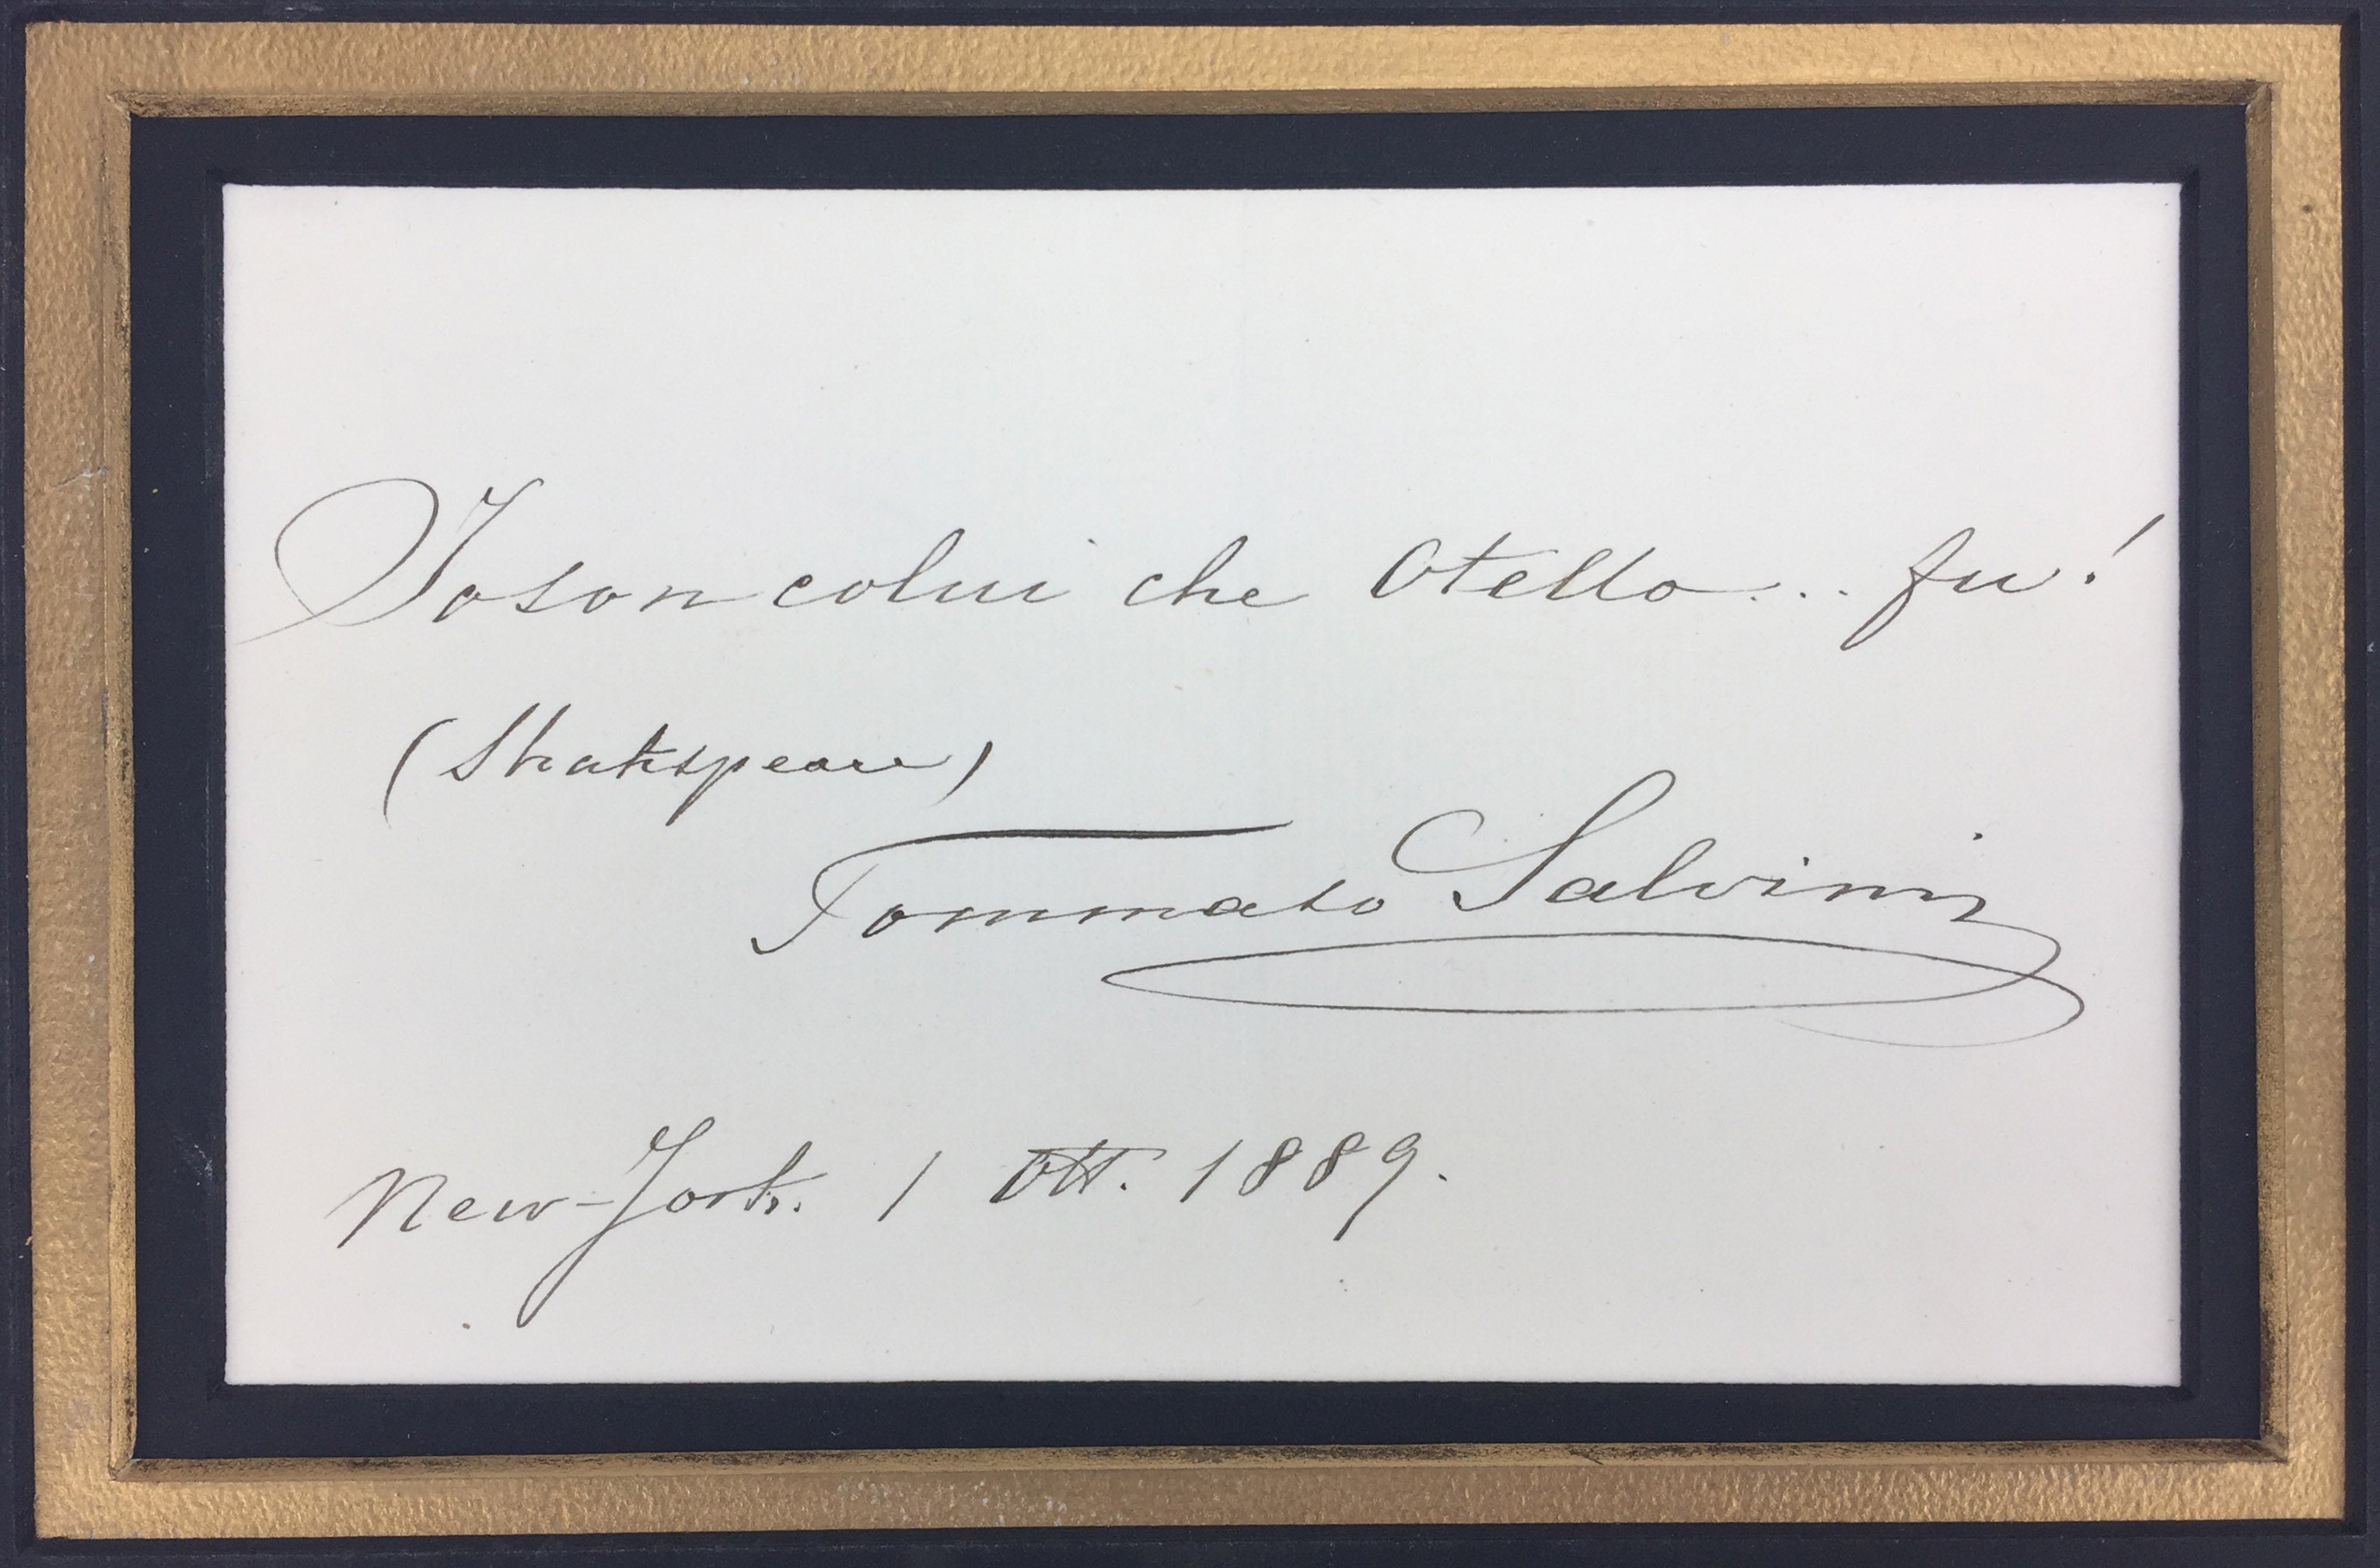 Io son colui che Otello... fu!
(Shakspeare)
Tommaso Salvini
New-York. 1 Ott. 1889.